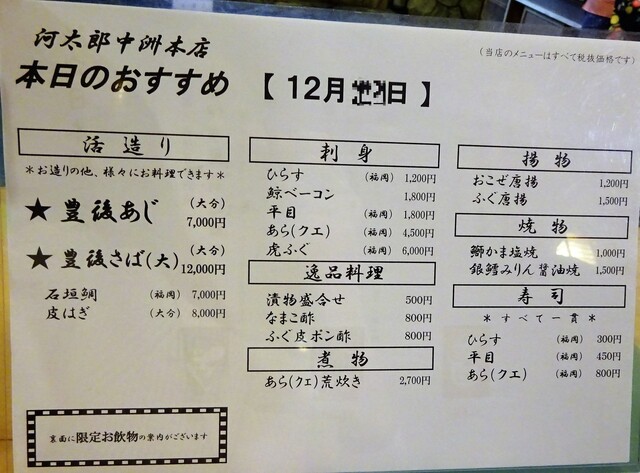 河太郎中洲本店
(当店のメニューはすべて税抜価格です)
本日のおすすめ 【 12月 日 】
活造り
*お造りの他、様々にお料理できます*
★ 豊後あじ (大分) 7,000円
★ 豊後さば(大) (大分) 12,000円
石垣鯛 (福岡) 7,000円
皮はぎ (大分) 8,000円
裏面に限定お飲物の案内がございます
刺身
ひらす (福岡) 1,200円
鯨ベーコン 1,800円
平目 (福岡) 1,800円
あら(クエ) (福岡) 4,500円
虎ふぐ (福岡) 6,000円
逸品料理
漬物盛合せ 500円
なまこ酢 800円
ふぐ皮ポン酢 800円
煮物
あら(クエ)荒炊き 2,700円
揚物
おこぜ唐揚 1,200円
ふぐ唐揚 1,500円
焼物
鰤かま塩焼 1,000円
銀鱈みりん醤油焼 1,500円
寿司
*すべて一貫*
ひらす (福岡) 300円
平目 (福岡) 450円
あら(クエ) (福岡) 800円